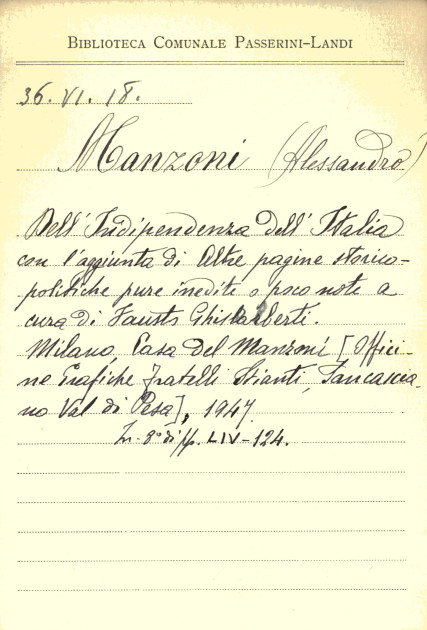 BIBLIOTECA COMUNALE PASSERINI-LANDI
36. VI. 18.
Manzoni (Alessandro)
Dell'Indipendenza dell'Italia
con l'aggiunta di Altre pagine storico-
politiche pure inedite o poco note a
cura di Fausto Ghisalberti.
Milano, Casa del Manzoni [Offici-
ne Grafiche fratelli Stianti, Sancascia-
no Val di Pesa], 1947.
In-8° di pp. LIV-124.